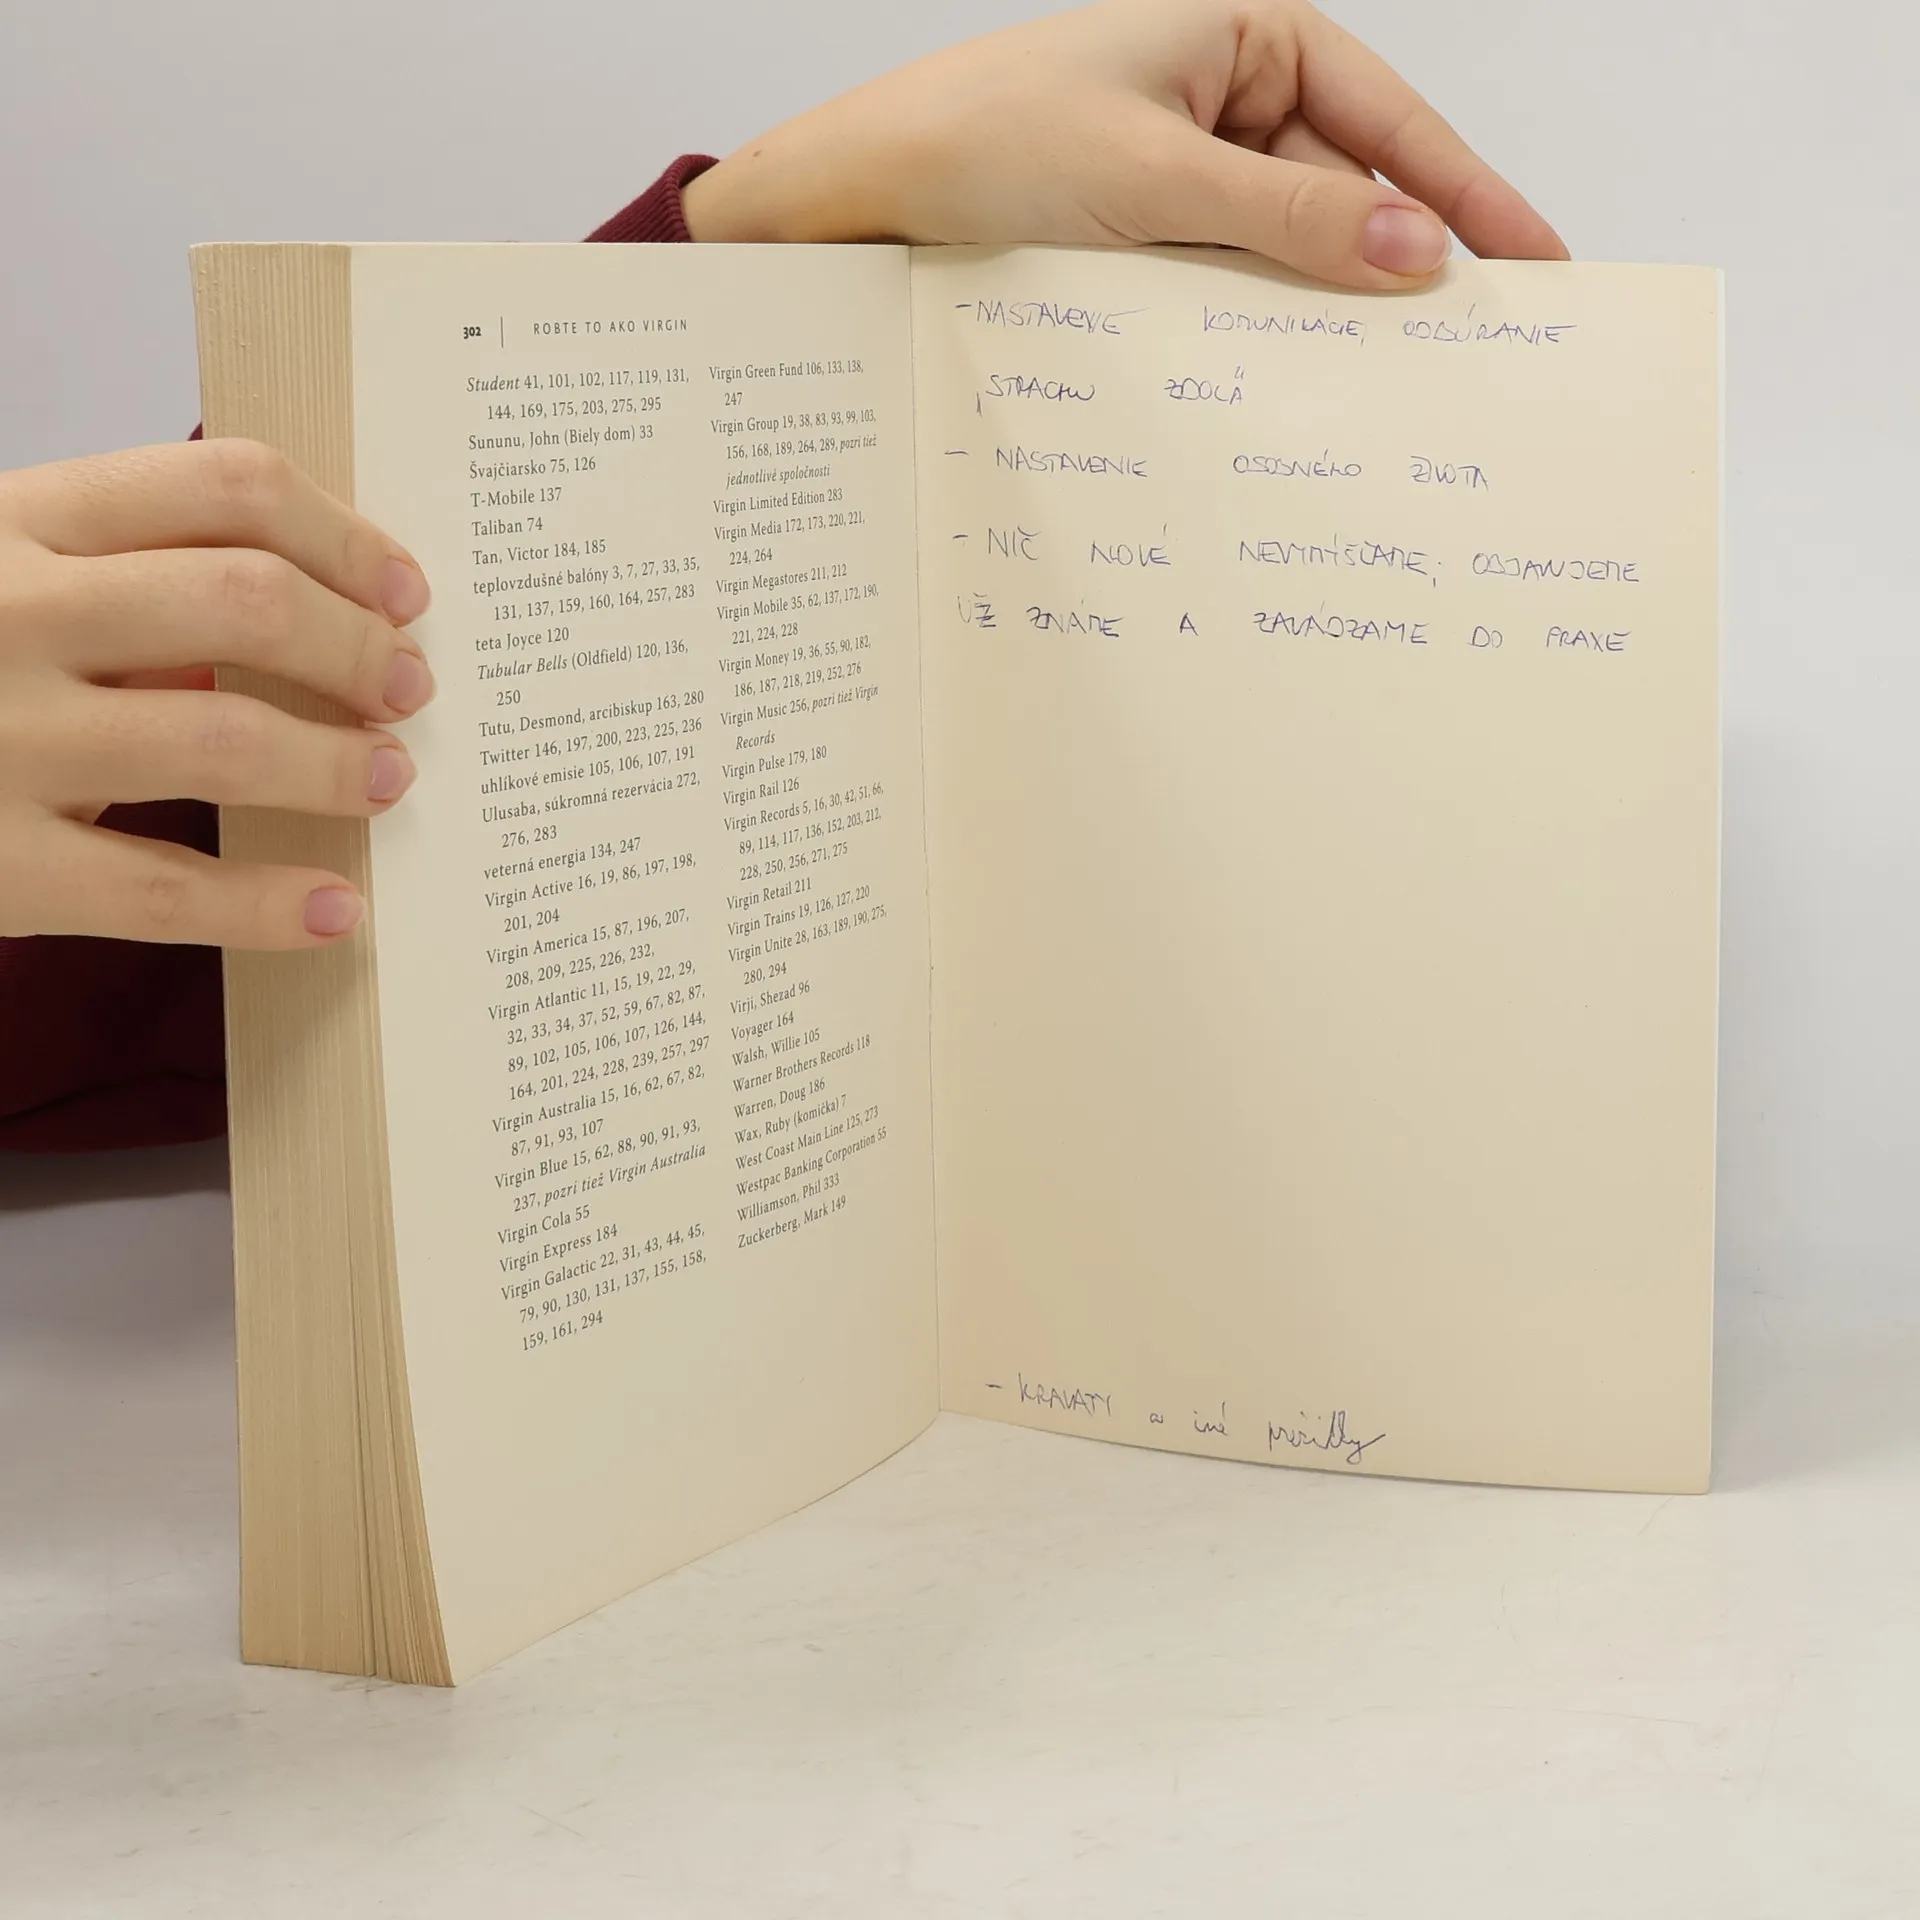 302 | ROBTE TO AKO VIRGIN
Student 41, 101, 102, 117, 119, 131,
144, 169, 175, 203, 275, 295
Sununu, John (Biely dom) 33
Švajčiarsko 75, 126
T-Mobile 137
Taliban 74
Tan, Victor 184, 185
teplovzdušné balóny 3, 7, 27, 33, 35,
131, 137, 159, 160, 164, 257, 283
teta Joyce 120
Tubular Bells (Oldfield) 120, 136,
250
Tutu, Desmond, arcibiskup 163, 280
Twitter 146, 197, 200, 223, 225, 236
uhlíkové emisie 105, 106, 107, 191
Ulusaba, súkromná rezervácia 272,
276, 283
veterná energia 134, 247
Virgin Active 16, 19, 86, 197, 198,
201, 204
Virgin America 15, 87, 196, 207,
208, 209, 225, 226, 232,
Virgin Atlantic 11, 15, 19, 22, 29,
32, 33, 34, 37, 52, 59, 67, 82, 87,
89, 102, 105, 106, 107, 126, 144,
164, 201, 224, 228, 239, 257, 297
Virgin Australia 15, 16, 62, 67, 82,
87, 91, 93, 107
Virgin Blue 15, 62, 88, 90, 91, 93,
237, pozri tiež Virgin Australia
Virgin Cola 55
Virgin Express 184
Virgin Galactic 22, 31, 43, 44, 45,
79, 90, 130, 131, 137, 155, 158,
159, 161, 294
Virgin Green Fund 106, 133, 138,
247
Virgin Group 19, 38, 83, 93, 99, 103,
156, 168, 189, 264, 289, pozri tiež
jednotlivé spoločnosti
Virgin Limited Edition 283
Virgin Media 172, 173, 220, 221,
224, 264
Virgin Megastores 211, 212
Virgin Mobile 35, 62, 137, 172, 190,
221, 224, 228
Virgin Money 19, 36, 55, 90, 182,
186, 187, 218, 219, 252, 276
Virgin Music 256, pozri tiež Virgin
Records
Virgin Pulse 179, 180
Virgin Rail 126
Virgin Records 5, 16, 30, 42, 51, 66,
89, 114, 117, 136, 152, 203, 212,
228, 250, 256, 271, 275
Virgin Retail 211
Virgin Trains 19, 126, 127, 220
Virgin Unite 28, 163, 189, 190, 275,
280, 294
Virji, Shezad 96
Voyager 164
Walsh, Willie 105
Warner Brothers Records 118
Warren, Doug 186
Wax, Ruby (komička) 7
West Coast Main Line 125, 273
Westpac Banking Corporation 55
Williamson, Phil 333
Zuckerberg, Mark 149
- NASTAVENIE KOMUNIKÁCIE, ODBÚRANIE
STRACHU ZDOLA
- NASTAVENIE OSOBNÉHO ŽIVOTA
- NIČ NOVÉ NEVYMÝŠĽAME, OBJAVUJEME
UŽ ZNÁME A ZAVÁDZAME DO PRAXE
- KRAVATY a iné prežitky